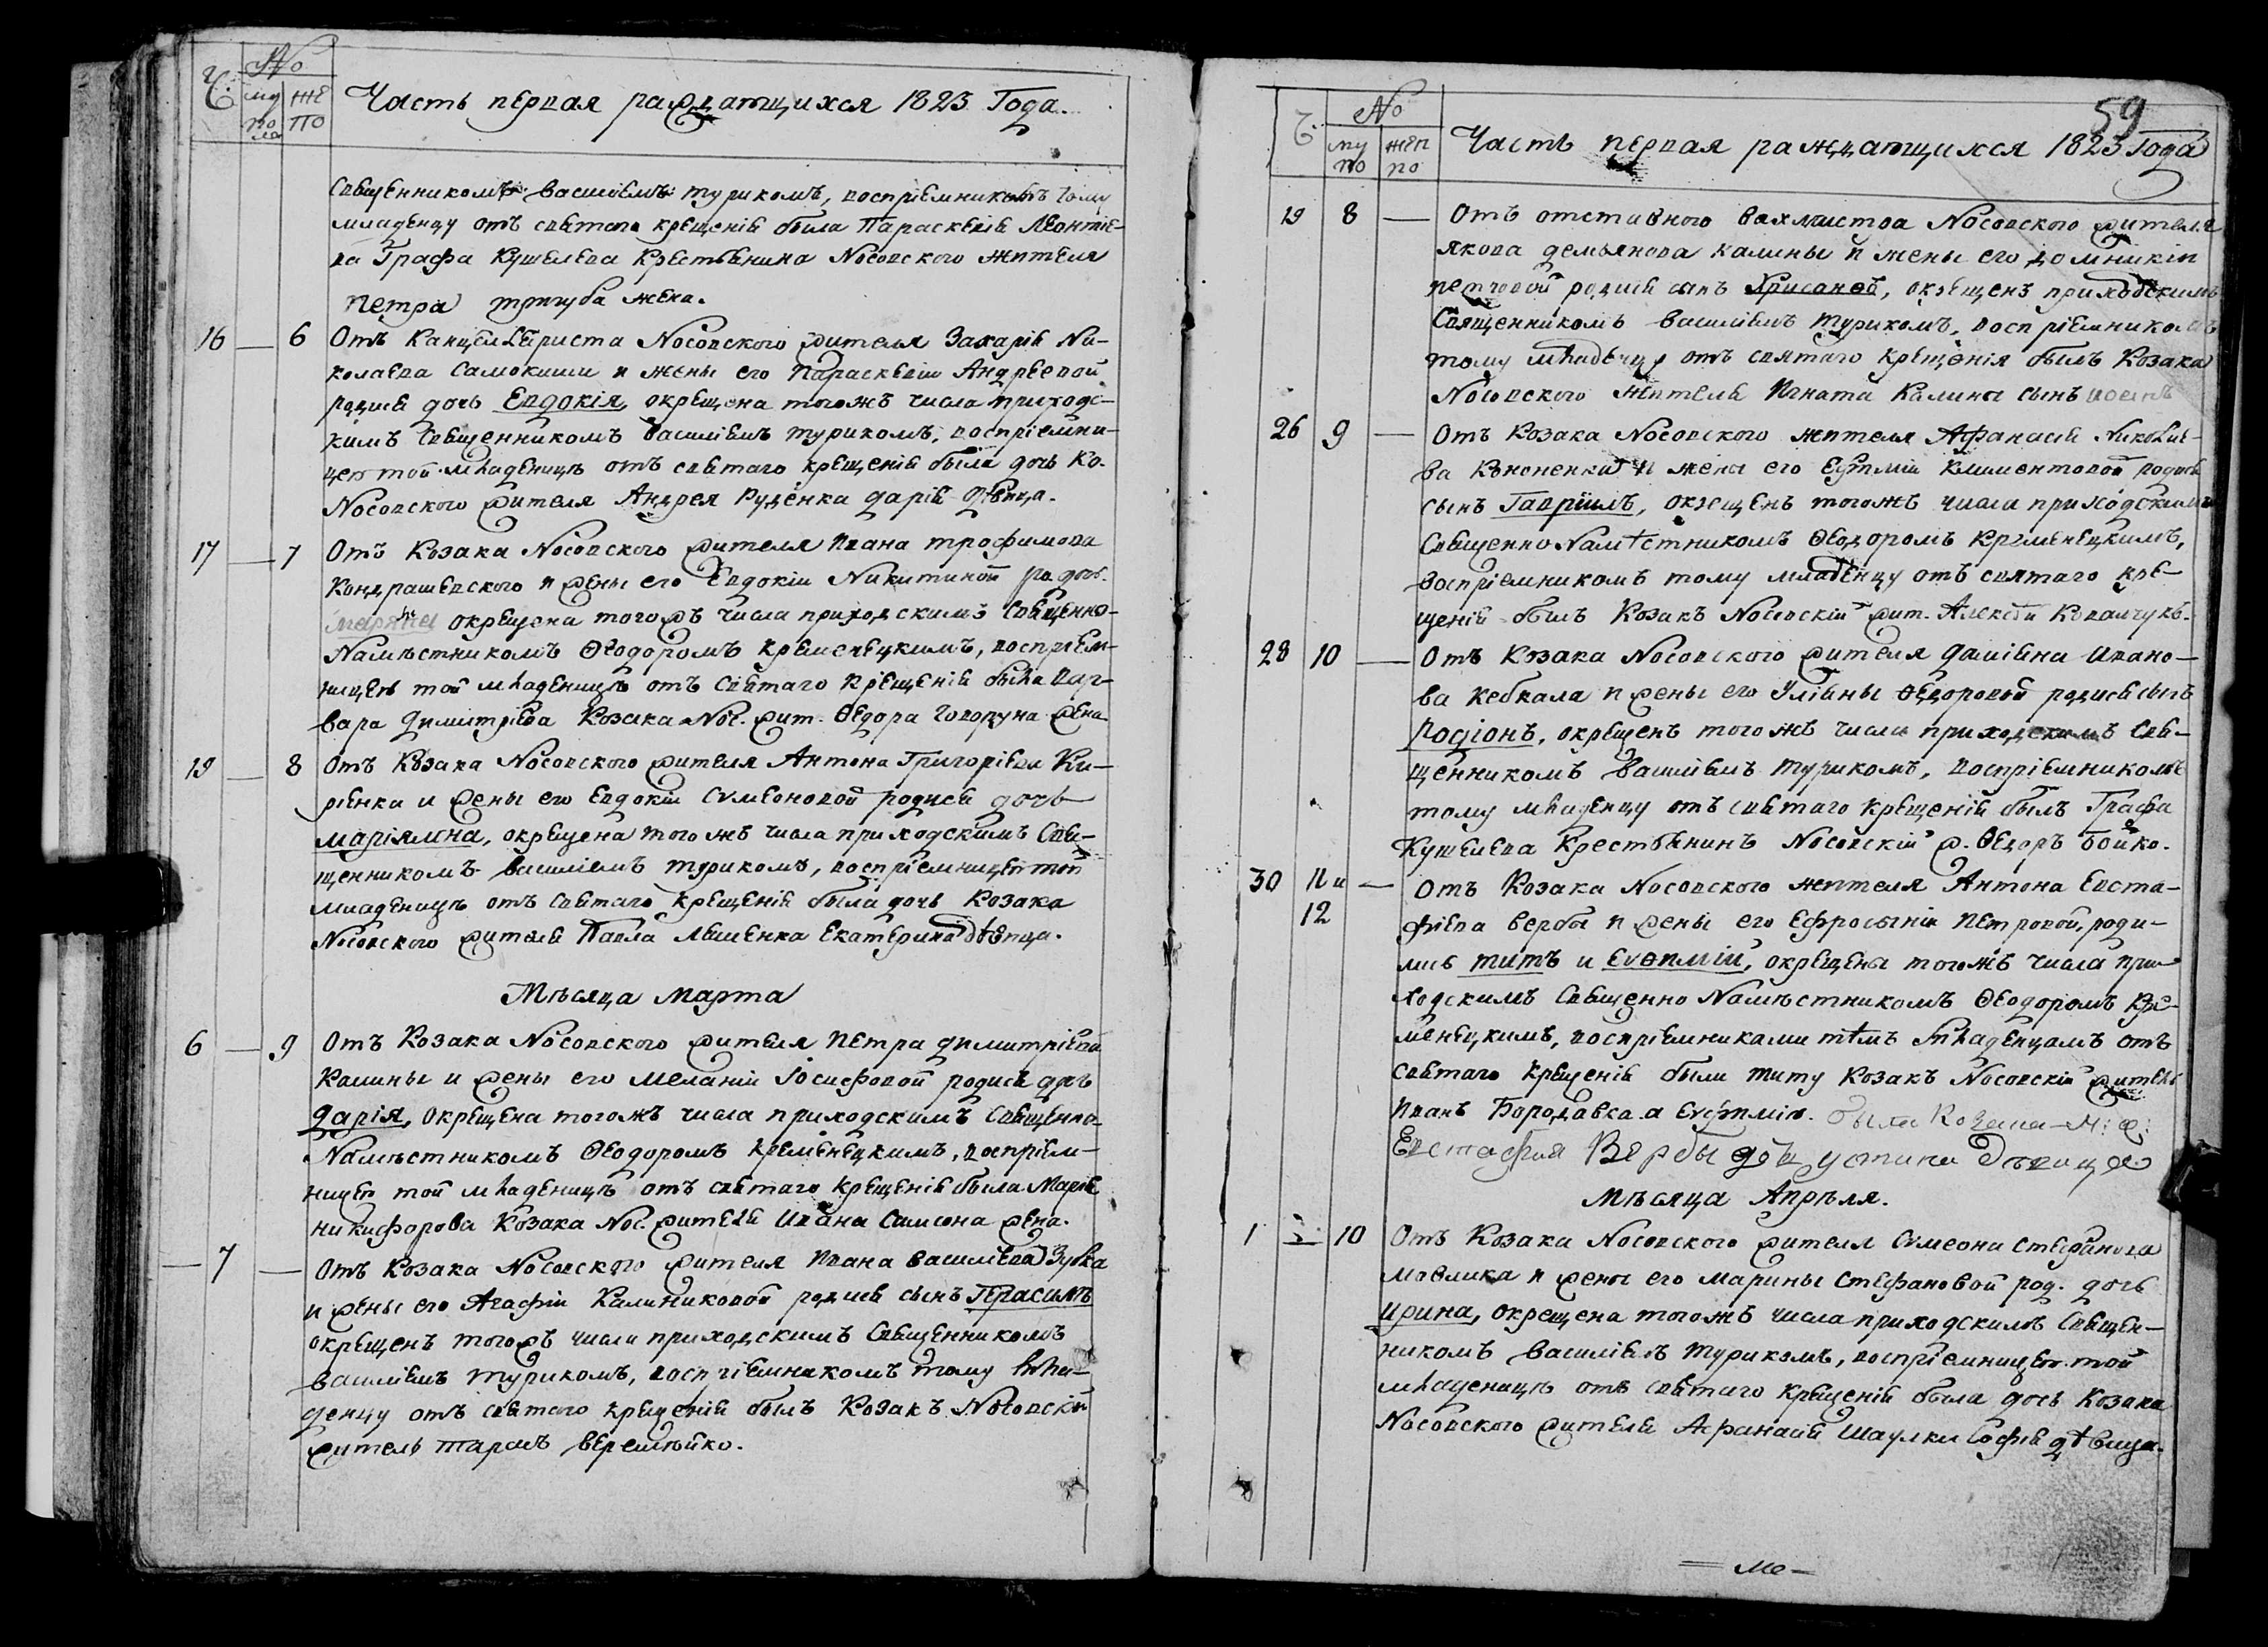 Ч. №
му по ла же по
Часть первая раждающихся 1823 Года.
Священникомъ василіемъ турикомъ, воспріемникомъ тому
младенцу отъ святаго крещенія была Параскевія Леонтіе-
ва Графа Кушелева Крестьянина Носовского жителя
Петра тригуба жена.
16 — 6 Отъ Канцеляриста Носовского жителя Захарія Ни-
колаева Самокиши и жены его Параскевіи Андреевой
родися дочь Евдокія, окрещена тогожъ числа приходс-
кимъ Священникомъ василіемъ турикомъ, воспріемни-
цею той младеницѣ отъ святаго крещенія была дочь Ко.
Носовского жителя Андрея Руденка дарія дѣвица.
17 — 7 Отъ Козака Носовского жителя Ивана трофимова
Кондрашевского и жены его Евдокіи Никитиной ро. дочь
окрещена тогожъ числа приходскимъ Священно-
Намѣстникомъ Ѳеодоромъ Кременецкимъ, воспріем-
ницею той младеницѣ отъ Святаго Крещенія была Вар-
вара Димитріева Козака Нос. жит. Ѳедора Говоруна жена
19 — 8 Отъ Козака Носовского жителя Антона Григоріева Ки-
ріенка и жены его Евдокіи Сѵмеоновой родися дочь
маріямна, окрещена тогожъ числа приходскимъ Свя-
щенникомъ василіемъ турикомъ, воспріемницею той
младеницѣ отъ Святаго Крещенія была дочь Козака
Носовского жителя Павла Екатерина дѣвица.
Мѣсяца Марта
6 — 9 Отъ Козака Носовского жителя Петра Димитріева
Калины и жены его Меланіи Іосифовой родися дочь
дарія, окрещена тогожъ числа приходскимъ Священно
Намѣстникомъ Ѳеодоромъ Кременецкимъ, воспріем-
ницею той младеницѣ отъ святаго крещенія была Марія
никифорова Козака Нос. жителя Ивана Самсона жена.
— 7 — Отъ Козака Носовского жителя Ивана василіева Зубка
и жены его Агафіи Калиниковой родися сынъ Герасимъ
окрещенъ тогожъ числа приходскимъ Священникомъ
василіемъ турикомъ, воспріемникомъ тому мла-
денцу отъ святаго крещенія былъ Козакъ Носовскій
житель тарасъ веремѣйко.
59
Ч. №
му по жен по
Часть первая раждающихся 1823 Года
19 8 — Отъ отставного вахмистра Носовского жителя
якова демьянова калины и жены его домникіи
родися сынъ Хрисанѳъ, окрещенъ приходскимъ
Священникомъ василіемъ турикомъ, воспріемникомъ
тому младенцу отъ святаго крещенія былъ Козака
Носовского жителя Игната Калины сынъ
26 9 — Отъ Козака Носовского жителя Афанасія Николае-
ва и жены его Еѵѳиміи Климентовой родися
сынъ Гавріилъ, окрещенъ тогожъ числа приходскимъ
Священно Намѣстникомъ Ѳеодоромъ Кременецкимъ,
воспріемникомъ тому младенцу отъ святаго кре-
щенія былъ Козакъ Носовскій жит. Алексѣй Ковалчукъ.
28 10 — Отъ Козака Носовского жителя даміяна Ивано-
ва Кебкала и жены его Уліяны Ѳедоровой родися сынъ
Родіонъ, окрещенъ тогожъ числа приходскимъ Свя-
щенникомъ василіемъ турикомъ, воспріемникомъ
тому младенцу отъ святаго крещенія былъ Графа
Кушелева Крестьянинъ Носовскій ж. Ѳедоръ Бойко.
30 11 и — Отъ Козака Носовского жителя Антона Евста-
12 фіева вербы и жены его Ефросиніи Петровой, роди-
лись титъ и Еѵѳимій, окрещены тогожъ числа при-
ходскимъ Священно Намѣстникомъ Ѳеодоромъ Кре-
менецкимъ, воспріемниками тѣмъ младенцамъ отъ
святаго крещенія были титу Козакъ Носовскій житель
Иванъ Бородавка а Еѵфимію была Козака Н: ж:
Евстафія Вербы дочь устина дѣвица
Мѣсяца Апрѣля.
1 — 10 Отъ Козака Носовского жителя Сѵмеона Стефанова
и жены его Марины Стефановой род. дочь
Ирина, окрещена тогожъ числа приходскимъ Священ-
никомъ василіемъ турикомъ, воспріемницею той
младеницѣ отъ святаго крещенія была дочь Козака
Носовского жителя Афанасія Шаулки Софія дѣвица.
— Ме —